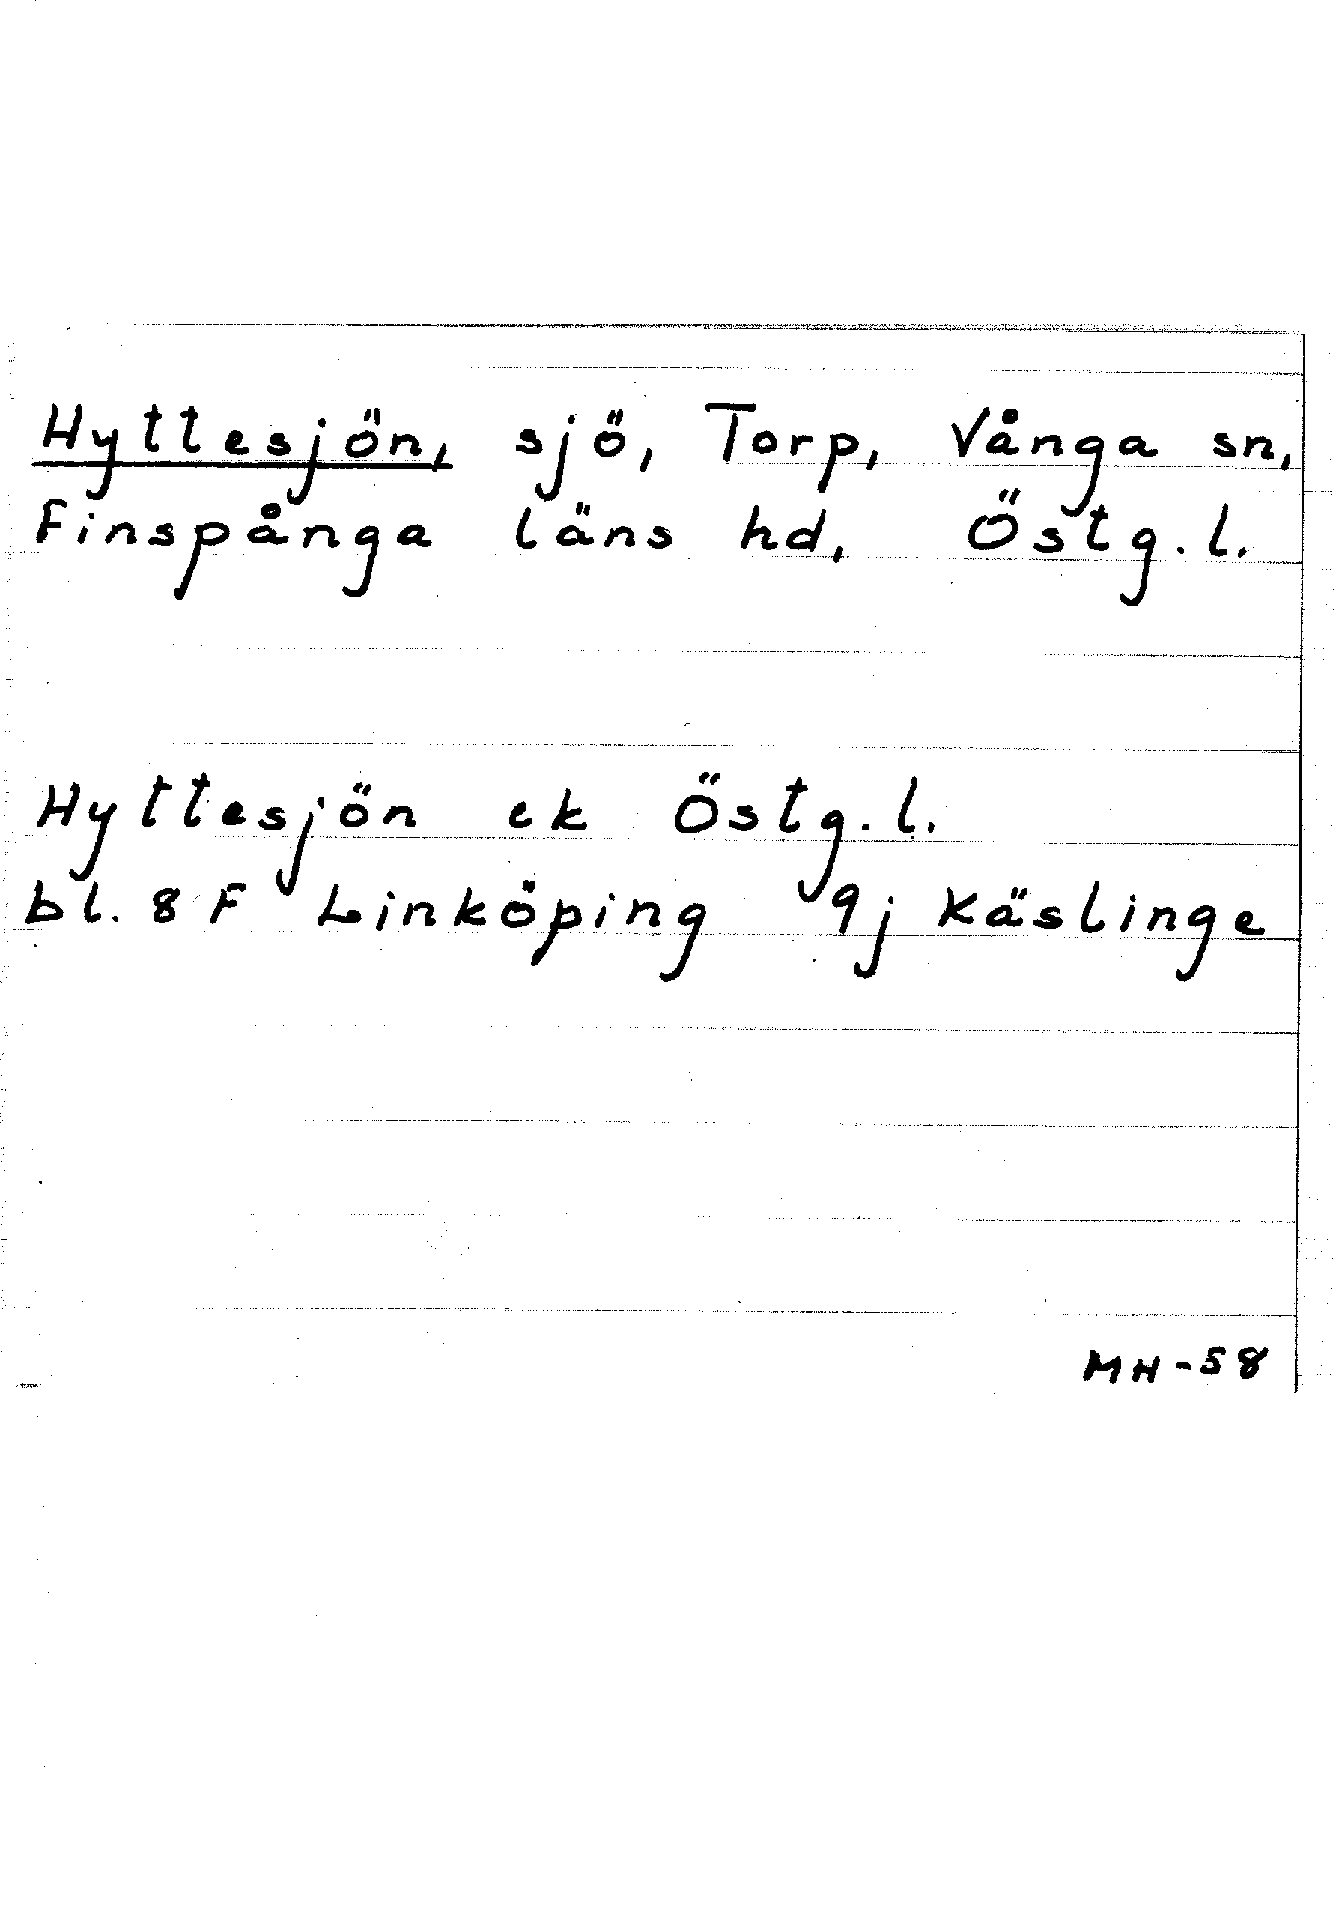 Hyttesjön, sjö, Torp, Vånga sn,
Finspånga läns hd, Östg.l.
Hyttesjön ek Östg.l.
bl. 8 F Linköping 9j Käslinge
MH-58